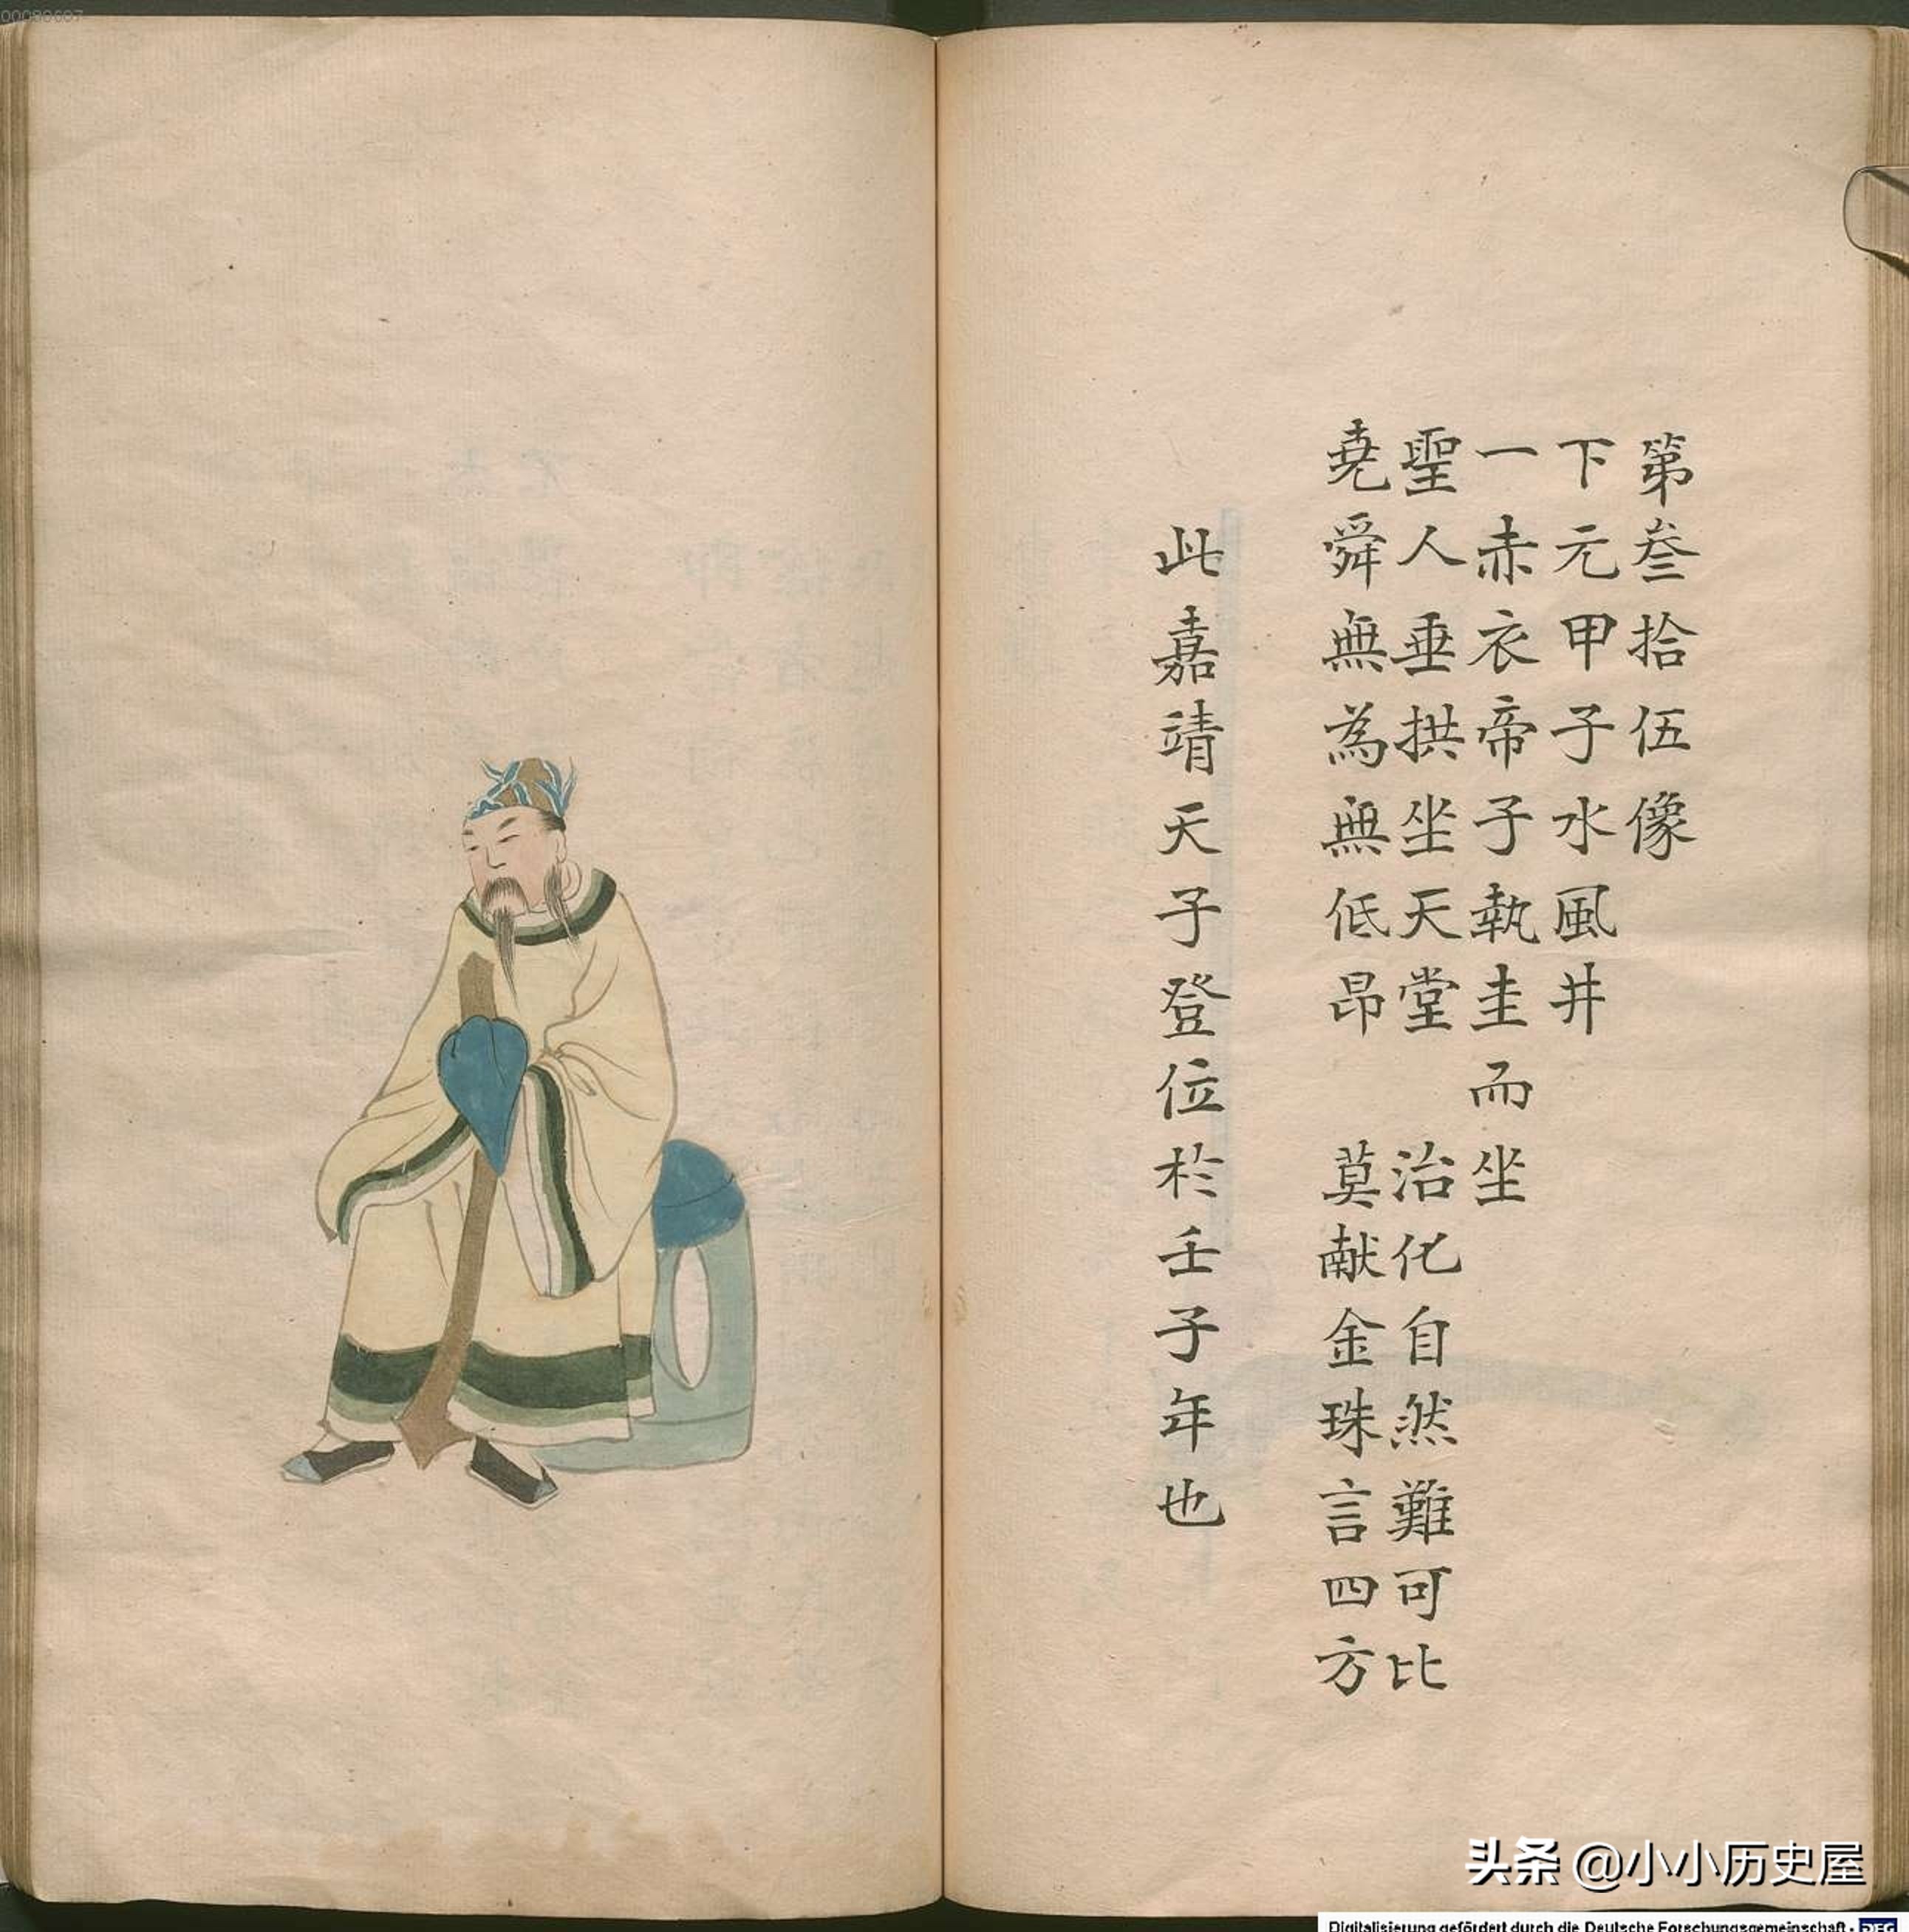 第叁拾伍像
下元甲子水風井
一赤衣帝子執圭而坐
聖人垂拱坐天堂　治化自然難可比
堯舜無為無低昂　莫献金珠言四方
此嘉靖天子登位於壬子年也
00089607
头条 @小小历史屋
Digitalisierung gefördert durch die Deutsche Forschungsgemeinschaft - DFG